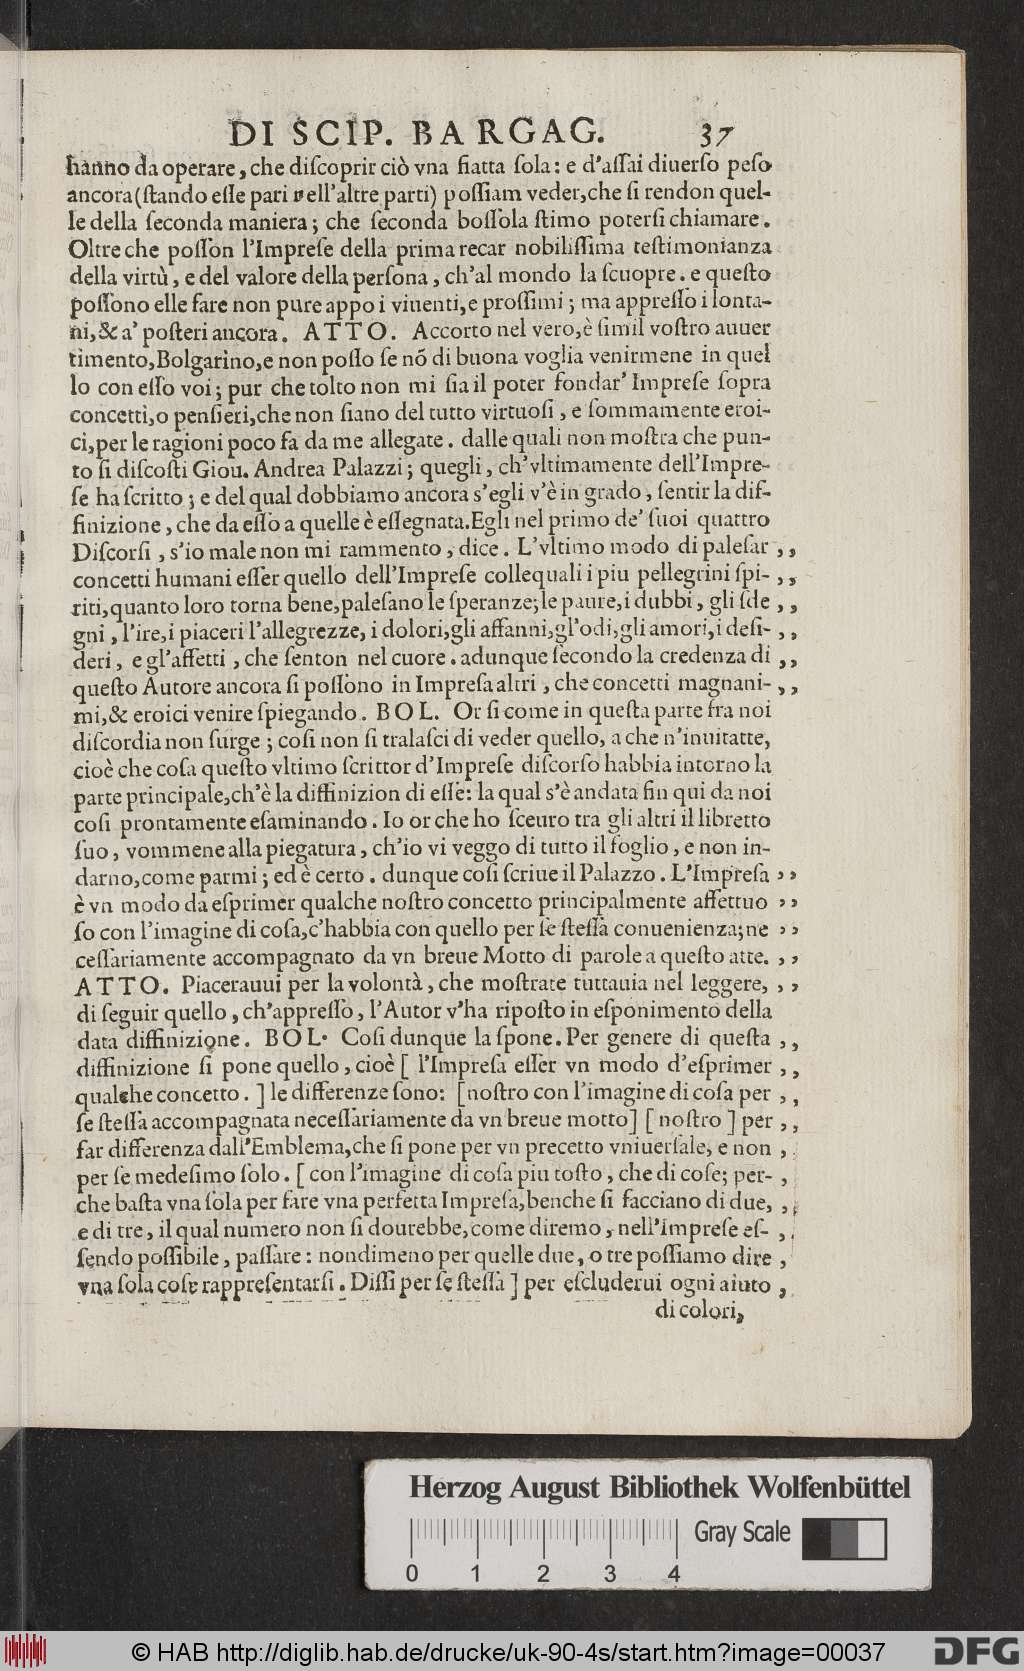 DI SCIP. BARGAG. 37
hanno da operare, che diſcoprir ciò vna fiatta ſola: e d'aſſai diuerſo peſo
ancora (ſtando eſſe pari nell'altre parti) poſſiam veder, che ſi rendon quel-
le della ſeconda maniera; che ſeconda boſſola ſtimo poterſi chiamare.
Oltre che poſſon l'Impreſe della prima recar nobiliſſima teſtimonianza
della virtù, e del valore della perſona, ch'al mondo la ſcuopre. e queſto
poſſono elle fare non pure appo i viuenti, e proſſimi; ma appreſſo i lonta-
ni, & a' poſteri ancora. ATTO. Accorto nel vero, è ſimil voſtro auuer
timento, Bolgarino, e non poſſo ſe nõ di buona voglia venirmene in quel
lo con eſſo voi; pur che tolto non mi ſia il poter fondar' Impreſe ſopra
concetti, o penſieri, che non ſiano del tutto virtuoſi, e ſommamente eroi-
ci, per le ragioni poco fa da me allegate. dalle quali non moſtra che pun-
to ſi diſcoſti Giou. Andrea Palazzi; quegli, ch'vltimamente dell'Impre-
ſe ha ſcritto; e del qual dobbiamo ancora s'egli v'è in grado, ſentir la dif-
finizione, che da eſſo a quelle è eſſegnata. Egli nel primo de' ſuoi quattro
Diſcorſi, s'io male non mi rammento, dice. L'vltimo modo di paleſar ,,
concetti humani eſſer quello dell'Impreſe collequali i piu pellegrini ſpi- ,,
riti, quanto loro torna bene, paleſano le ſperanze; le paure, i dubbi, gli ſde ,,
gni, l'ire, i piaceri l'allegrezze, i dolori, gli affanni, gl'odi, gli amori, i deſi- ,,
deri, e gl'affetti, che ſenton nel cuore. adunque ſecondo la credenza di ,,
queſto Autore ancora ſi poſſono in Impreſa altri, che concetti magnani- ,,
mi, & eroici venire ſpiegando. BOL. Or ſi come in queſta parte fra noi
diſcordia non ſurge; coſi non ſi tralaſci di veder quello, a che n'inuitatte,
cioè che coſa queſto vltimo ſcrittor d'Impreſe diſcorſo habbia intorno la
parte principale, ch'è la diffinizion di eſſe: la qual s'è andata ſin qui da noi
coſi prontamente eſaminando. Io or che ho ſceuro tra gli altri il libretto
ſuo, vommene alla piegatura, ch'io vi veggo di tutto il foglio, e non in-
darno, come parmi; ed è certo. dunque coſi ſcriue il Palazzo. L'Impreſa ,,
è vn modo da eſprimer qualche noſtro concetto principalmente affettuo ,,
ſo con l'imagine di coſa, c'habbia con quello per ſe ſteſſa conuenienza; ne ,,
ceſſariamente accompagnato da vn breue Motto di parole a queſto atte. ,,
ATTO. Piacerauui per la volontà, che moſtrate tuttauia nel leggere, ,,
di ſeguir quello, ch'appreſſo, l'Autor v'ha ripoſto in eſponimento della
data diffinizione. BOL. Coſi dunque la ſpone. Per genere di queſta ,,
diffinizione ſi pone quello, cioè [ l'Impreſa eſſer vn modo d'eſprimer ,,
qualche concetto. ] le differenze ſono: [noſtro con l'imagine di coſa per ,,
ſe ſteſſa accompagnata neceſſariamente da vn breue motto] [ noſtro ] per ,,
far differenza dall'Emblema, che ſi pone per vn precetto vniuerſale, e non ,
per ſe medeſimo ſolo. [ con l'imagine di coſa piu toſto, che di coſe; per- ,
che baſta vna ſola per fare vna perfetta Impreſa, benche ſi facciano di due, ,,
e di tre, il qual numero non ſi dourebbe, come diremo, nell'Impreſe eſ- ,,
ſendo poſſibile, paſſare: nondimeno per quelle due, o tre poſſiamo dire ,
vna ſola coſe rappreſentarſi. Diſſi per ſe ſteſſa ] per eſcluderui ogni aiuto ,
di colori,
Herzog August Bibliothek Wolfenbüttel
Gray Scale
0 1 2 3 4
© HAB http://diglib.hab.de/drucke/uk-90-4s/start.htm?image=00037
DFG